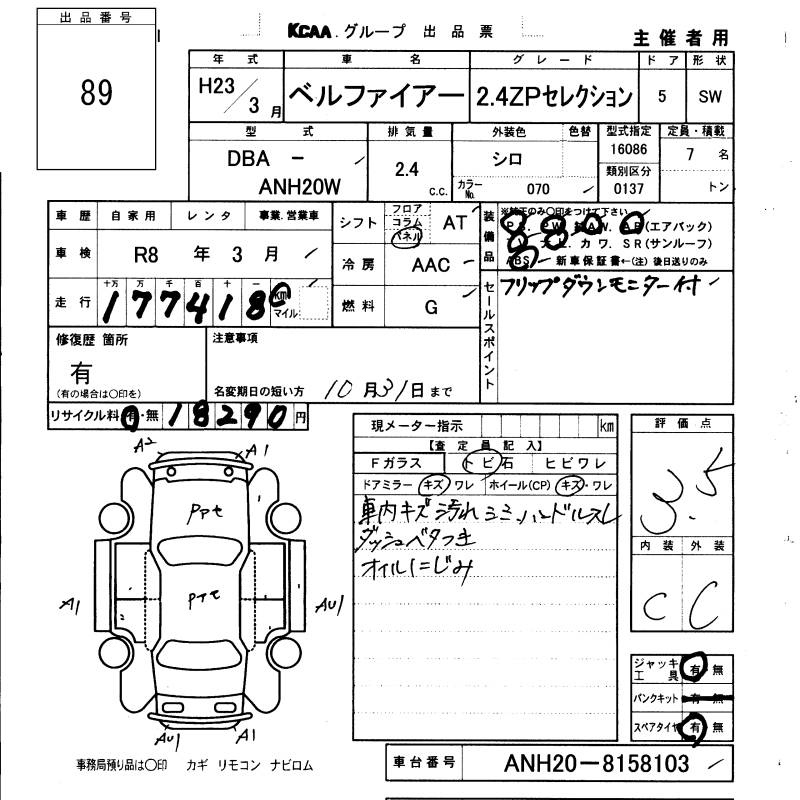 出品番号
89
KCAA グループ 出品票
主催者用
年式 車名 グレード ドア 形状
H23/3月 ベルファイアー 2.4ZPセレクション 5 SW
型式 排気量 外装色 色替 型式指定 定員・積載
DBA - ANH20W
2.4 c.c.
シロ
カラーNo. 070
16086
類別区分
0137
7 名
トン
車歴 自家用 レンタ 事業.営業車
車検 R8 年 3 月
走行 十万 万 千 百 十 一
177418 km マイル
シフト フロア コラム パネル AT
冷房 AAC
燃料 G
装備品
※純正のみ○印をつけて下さい
P.S. P.W. A.W. A.B(エアバック)
カワ. S R(サンルーフ)
ABS 新車保証書←(注) 後日送りのみ
セールスポイント
フリップダウンモニター付
修復歴 箇所
有
(有の場合は○印を)
注意事項
名変期日の短い方 10月31日まで
リサイクル料 有・無 18290円
現メーター指示 km
【査定員記入】
Fガラス トビ石 ヒビワレ
ドアミラー キズ・ワレ ホイール(CP) キズ・ワレ
車内キズ汚れシミ、ハンドルスレ
ダッシュベタつき
オイルにじみ
評価点
3.5
内装 外装
C C
A2 A1
PPt
A1 AU1
PTt
AU1 A1
ジャッキ工具 有 無
パンクキット 有 無
スペアタイヤ 有 無
事務局預り品は○印 カギ リモコン ナビロム
車台番号 ANH20-8158103